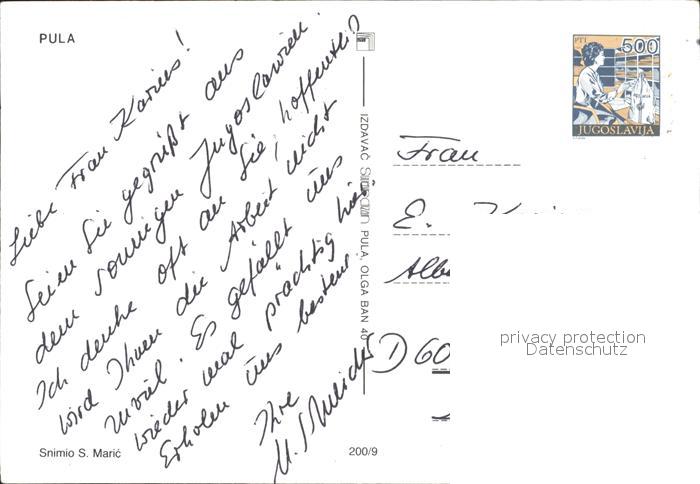 PULA
Liebe Frau Karius!
Seien Sie gegrüßt aus
dem sonnigen Jugoslawien.
Ich denke oft an Sie, hoffentlich
wird Ihnen die Arbeit nicht
zuviel. Es gefällt uns
wieder mal prächtig hier,
Erholen uns bestens.
Ihre
IZDAVAČ
PULA, OLGA BAN 40
PTT
500
JUGOSLAVIJA
Frau
E.
Alb
D 60
privacy protection
Datenschutz
Snimio S. Marić
200/9